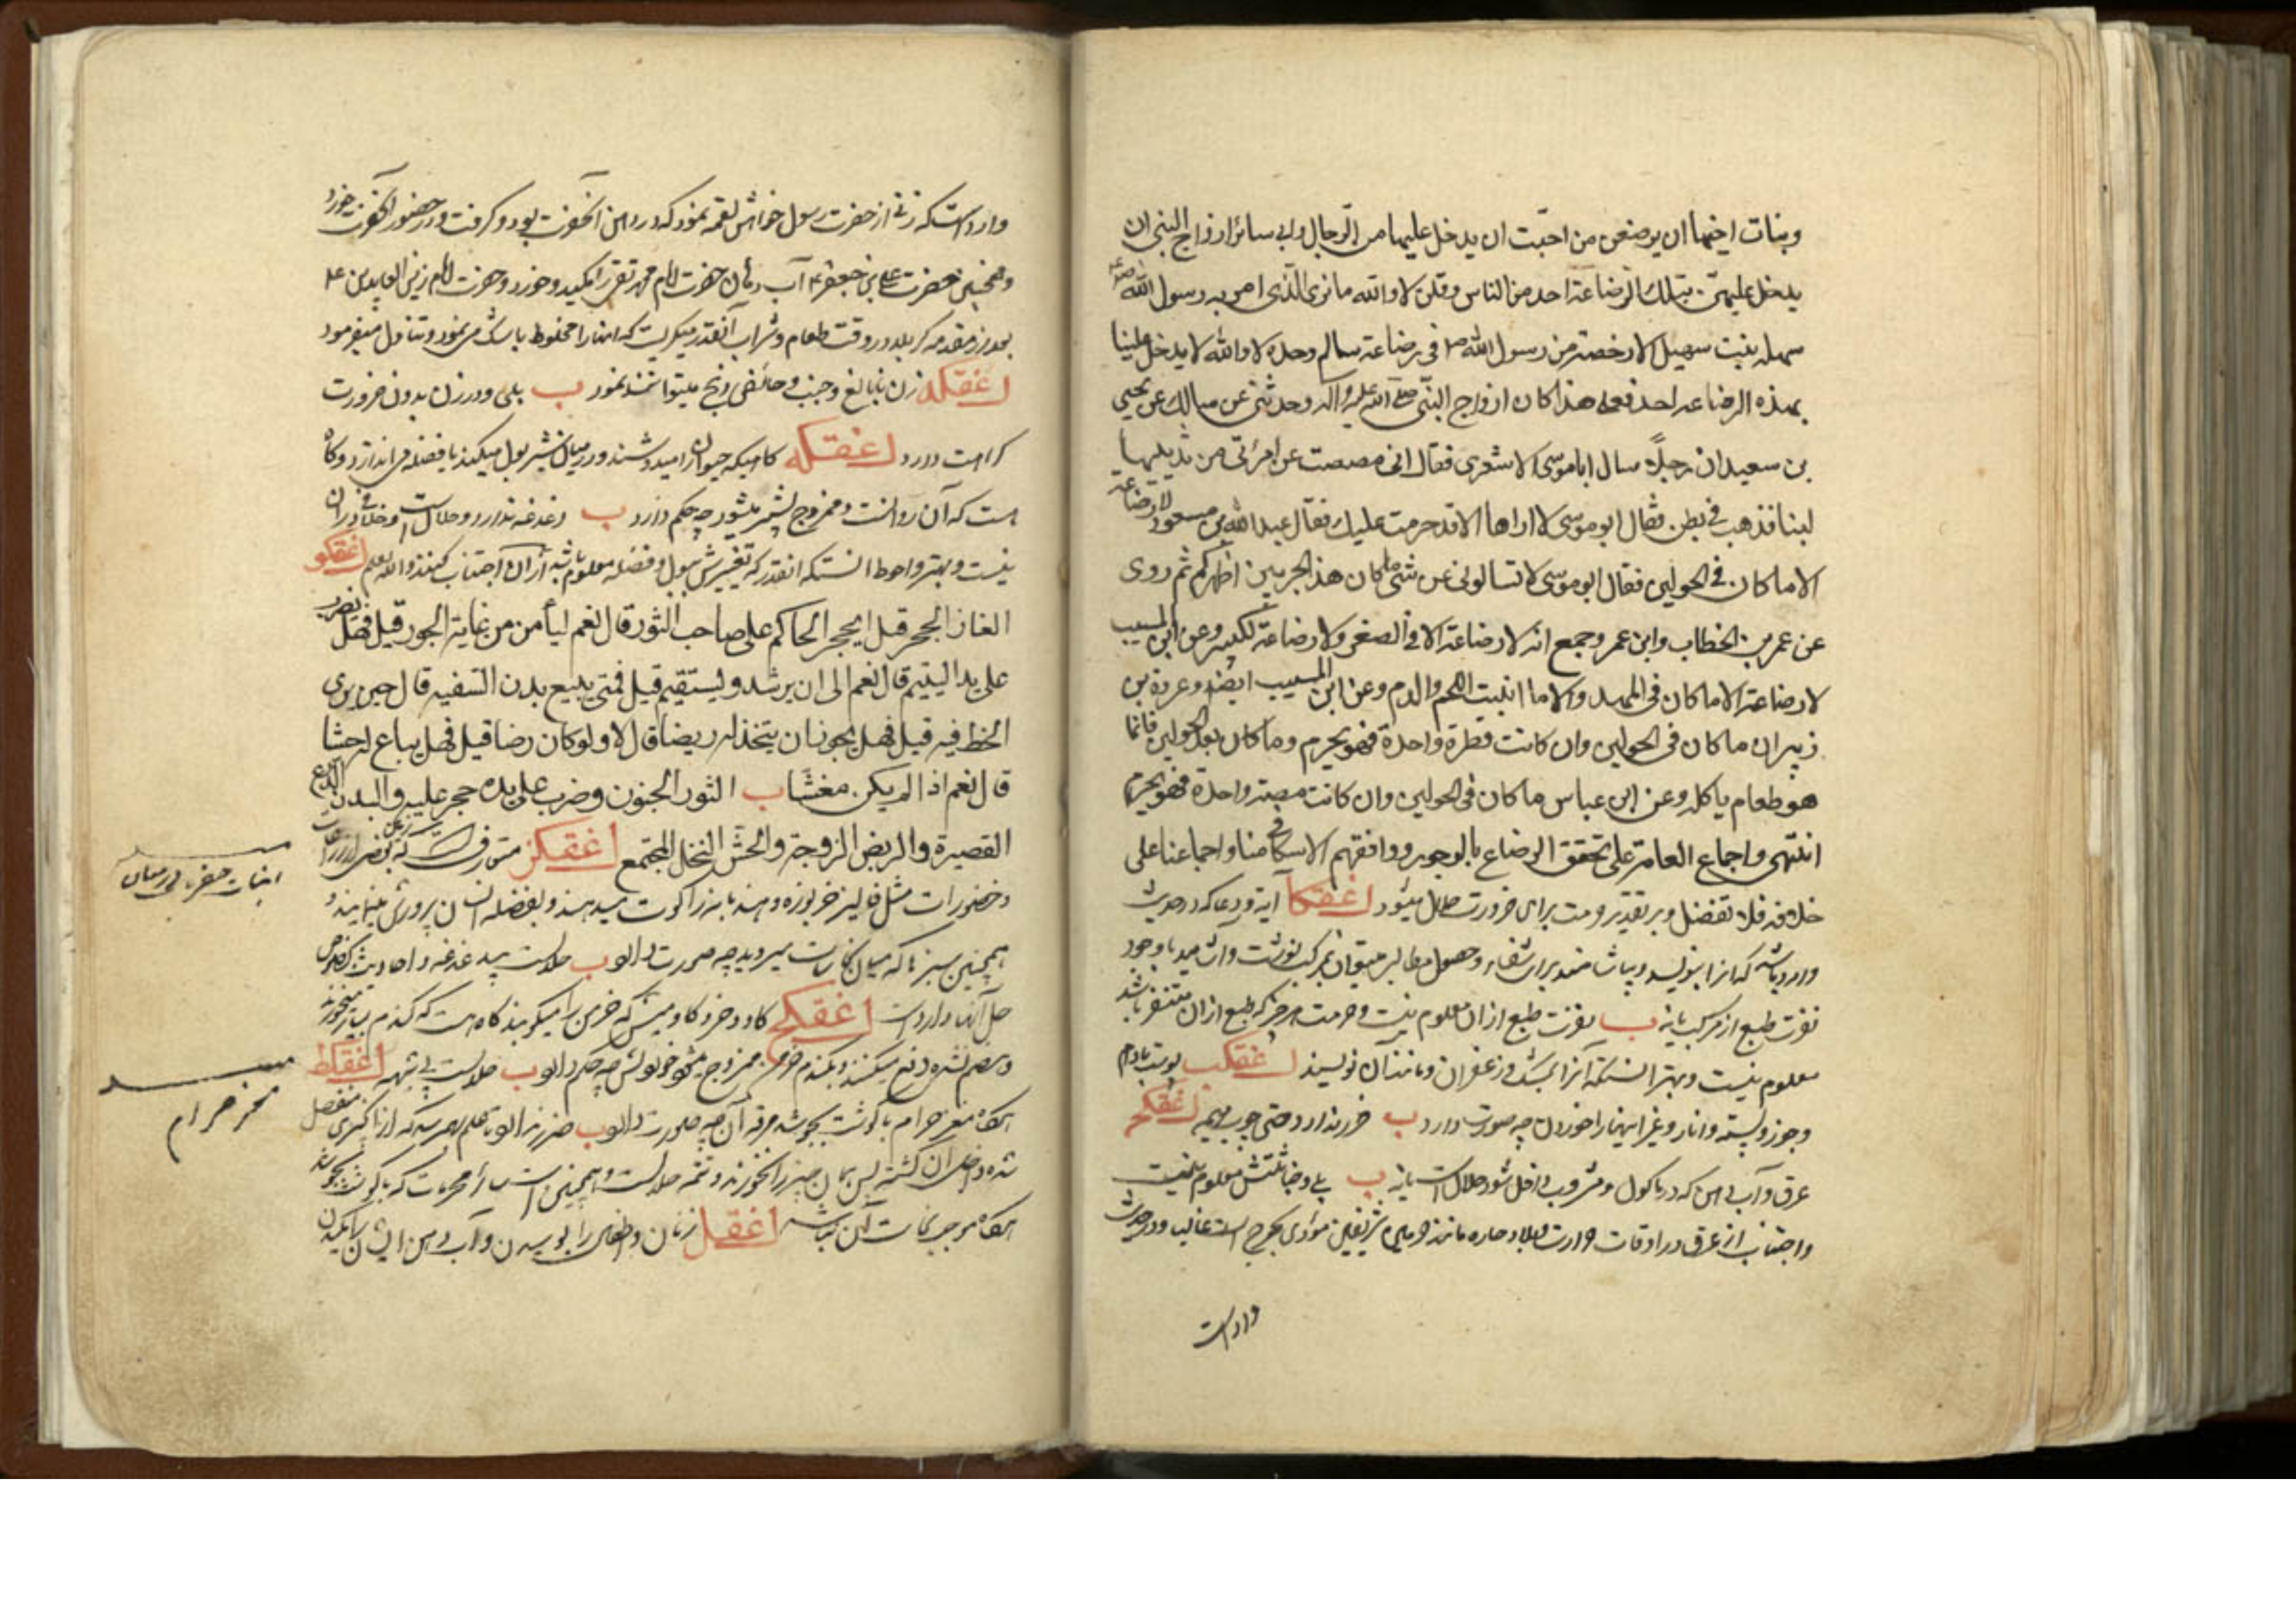 وبنات اخيها ان يرضعن من احبّت ان يدخل عليها من الرّجال وابى سائر ازواج النبى ان
يدخل عليهنّ بتلك الرّضاعة احد من الناس وقلن لا والله ما نرى الّذى امر به رسول الله ص
سهله بنت سهيل الا رخصة من رسول الله ص فى رضاعة سالم وحده لا والله لا يدخل علينا
بهذه الرضاعه احد فعلى هذا كان ازواج النبّى صلى الله عليه وآله وحدثنى عن مالك عن يحيى
بن سعيد ان رجلاً سال ابا موسى الاشعرى فقال انى مصصت عن امرأتى من ثدييها
لبنا فذهب فى بطنى فقال ابو موسى لا اراها الا قد حرمت عليك فقال عبد الله بن مسعود لا رضاعة
الا ما كان فى الحولين فقال ابو موسى لا تسالونى عن شئ ما كان هذا الحبر بين اظهركم ثم روى
عن عمر بن الخطاب وابن عمر وجمع انه لا رضاعة الا فى الصغر ولا رضاعة لكبير وعن ابن المسيب
لا رضاعة الا ما كان فى المهد والا ما انبت اللحم والدم وعن ابن المسيب ايضا وعروة بن
زبير ان ما كان فى الحولين وان كانت قطرة واحدة فهو يحرم وما كان بعد الحولين فانما
هو طعام ياكله وعن ابن عباس ما كان فى الحولين وان كانت مصة واحدة فهو يحرم
انتهى واجماع العامة على تحقق الرضاع بالوجور ووافقهم الاسكافى منا واجماعنا على
خلافه فلا تغفل وبر تقدير حرمت براى ضرورت حلال ميشود اغقكا آيه و دعا كه در حديث
وارد باشد كه انرا بنويسد وبياشامند براى شفاء وحصول مطالب ميتوان بمركب نوشت وآشاميد با وجود
نفرت طبع از مركب يا نه ب نفرت طبع از ان معلوم نيست وحرمت هر چيز كه طبع از ان متنفر باشد
معلوم نيست وبهتر انستكه آنرا بمشك و زعفران ومانند آن نويسند اغقكب پوست بادام
وجوز وپسته وانار وغير اينها را خوردن چه صورت دارد ب ضرر ندارد حتى چوب هيمه اغقكج
عرق وآب دهن كه در ماكول ومشروب داخل شود حلال است يا نه ب بلى وخباثتش معلوم نيست
واجتناب از عرق در اوقات حرارت وبلاد حاره مانند حرمين شريفين مؤدى بحرج است غالبا ودر حديث
وارد است
وارد است كه زنى از حضرت رسول خواهش لقمه نمود كه در دهن آنحضرت بود و گرفت و در حضور آنحضرت خورد
وهمچنين حضرت على بن جعفر ع آب دهان حضرت امام محمد تقى را مكيد وخورد وحضرت امام زين العابدين ع
بعد از مقدمه كربلا در وقت طعام وشراب آنقدر ميگريست كه انها را مخلوط باشك مى نمود وتناول ميفرمود
اغقكد زن نابالغ وجنب وحائض ذبح ميتوانند نمود ب بلى ودر زن بدون ضرورت
كراهت دارد اغقكه گاهيكه حيوان را ميدوشند در ميان شير بول ميكند يا فضله مى اندازد وگاه
هست كه آن روانست وممزوج بشير ميشود چه حكم دارد ب دغدغه ندارد وحلال است وخلافى در ان
نيست وبهتر واحوط انستكه انقدر كه تغييرش ببول وفضله معلوم باشد از ان اجتناب كنند والله يعلم اغقكو
الغاز الحجر قيل ايحجر الحاكم على صاحب الثور قال نعم ليأمن من غاية الجور قيل فهل له ان يضرب
على يد اليتيم قال نعم الى ان يرشد ويستقيم قيل فمتى يبيع بدن السفيه قال حين يرى
الحظ فيه قيل فهل يجوز ان يتخذ له ربيضا قال لا ولو كان رضا قيل فهل يباع له حشا
قال نعم اذا لم يكن مغشا ب الثور الجنون وضرب على يده حجر عليه والبدن الدرع
القصيرة والربض الزوجة والحش النخل المجتمع اغقكز متعارف است كه بعض زراعات
وخضورات مثل فاليز خربوزه وهندبانه را كوت ميدهند وبفضله انسان پرورش مينمايند و
همچنين سبزها كه ميان نجاسات ميرويد چه صورت دارد ب حلالست بيدغدغه واحاديث بخصوص
حل آنها وارد است اغقكح گاو وخر وگاوميش كه خرمن را ميكوبند گاه هست كه گندم بسيار ميخورند
وهضم نشده دفع ميكنند وبگندم خرمن ممزوج ميشود خوردنش چه حكم دارد ب حلالست بى شبهه اغقكط
هرگاه مغز حرام با گوشت بجوشد مرقه آن چه صورت دارد ب ضرر ندارد
شده داخل آن گشته پس همان چيز را نخورند وتتمه حلالست وهمچنين است ساير محرمات كه با گوشت بجوشد
هرگاه موجب نجاست آن نباشد اغقل زنان واطفال را بوسيدن وآب دهن ايشان را مكيدن
مغز حرام